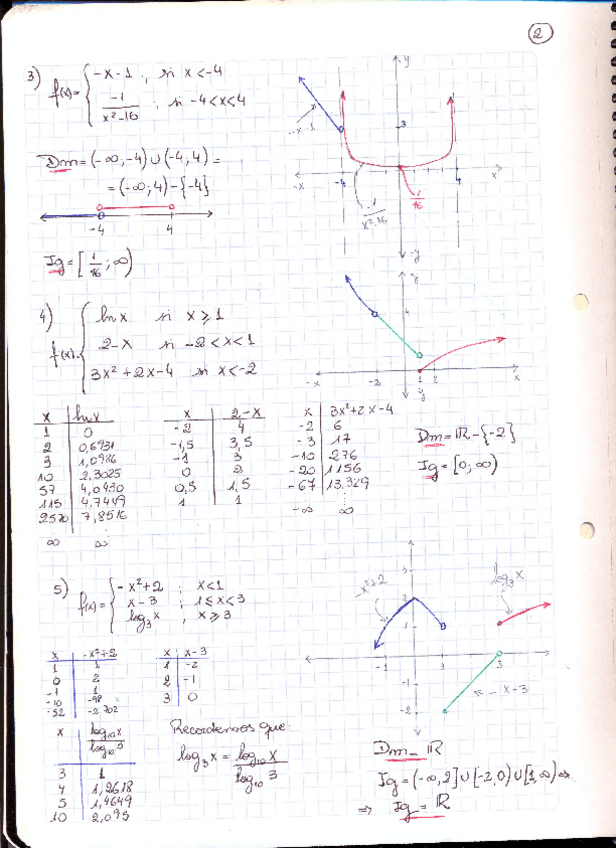 2
3) f(x)= { -x-1 , si x<-4
-1/(x²-16) , si -4<x<4
Dm=(-∞,-4)∪(-4,4)=
=(-∞,4)-{-4}
-4 4
Ig=[1/16;∞)
y
3
-x-1
-x -4 4 x
-1/(x²-16) 1/16
-y
4) f(x)= { ln x si x⩾1
2-x si -2<x<1
3x²+2x-4 si x<-2
y
4
-x -2 1 2 x
x ln x
1 0
2 0,6931
3 1,0986
10 2,3025
57 4,0430
115 4,7449
2570 7,8516
∞ ∞
x 2-x
-2 4
-1,5 3,5
-1 3
0 2
0,5 1,5
1 1
x 3x²+2x-4
-2 6
-3 17
-10 276
-20 1156
-67 13,329
-∞ ∞
Dm=ℝ-{-2}
Ig=[0;∞)
5) f(x)= { -x²+2 ; x<1
x-3 ; 1≤x<3
log₃x , x⩾3
x -x²+2
1 1
0 2
-1 1
-10 -98
-52 -2702
x x-3
1 -2
2 -1
3 0
x log₁₀x/log₁₀3
3 1
4 1,2618
5 1,4649
10 2,095
Recordemos que:
log₃x = log₁₀x/log₁₀3
-x²+2 log₃x
1
-1 3
-1
-2 x-3
Dm=ℝ
Ig=(-∞,2]∪[-2,0)∪[1,∞)⇒
⇒ Ig=ℝ